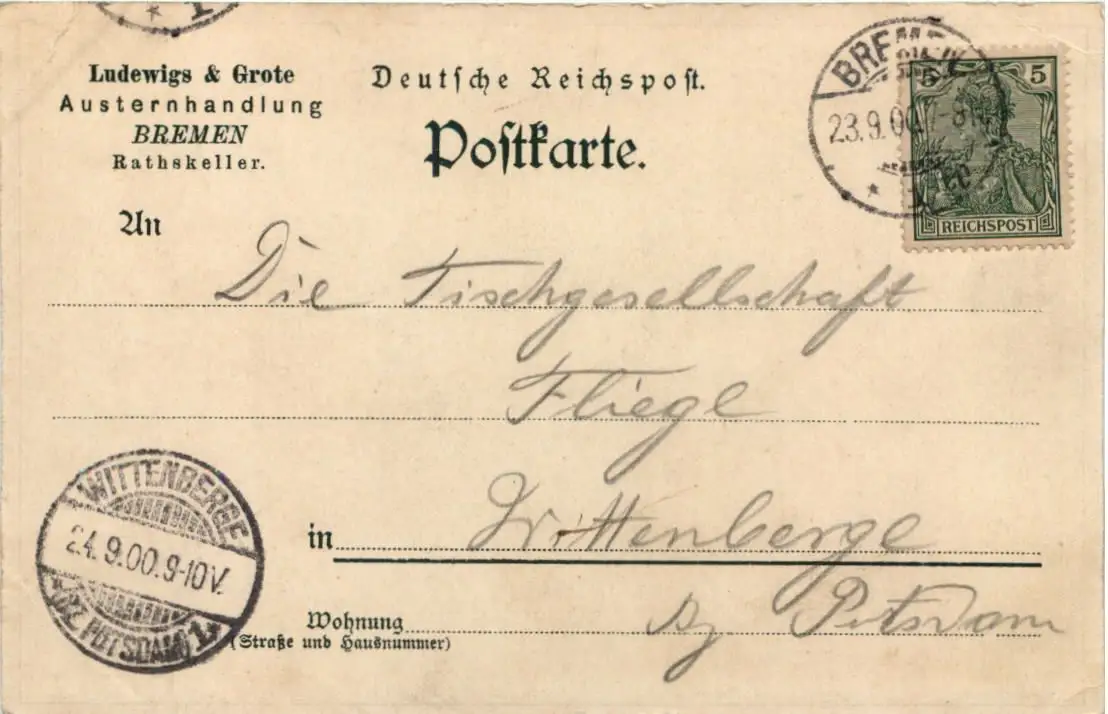 Ludewigs & Grote
Austernhandlung
BREMEN
Rathskeller.
Deutsche Reichspost.
Postkarte.
BREMEN
23.9.00
5 5
REICHSPOST
An
Die Tischgesellschaft
Fliege
in Wittenberge
Bz Potsdam
Wohnung
(Straße und Hausnummer)
WITTENBERGE
24.9.00.9-10V.
(BZ. POTSDAM) 1